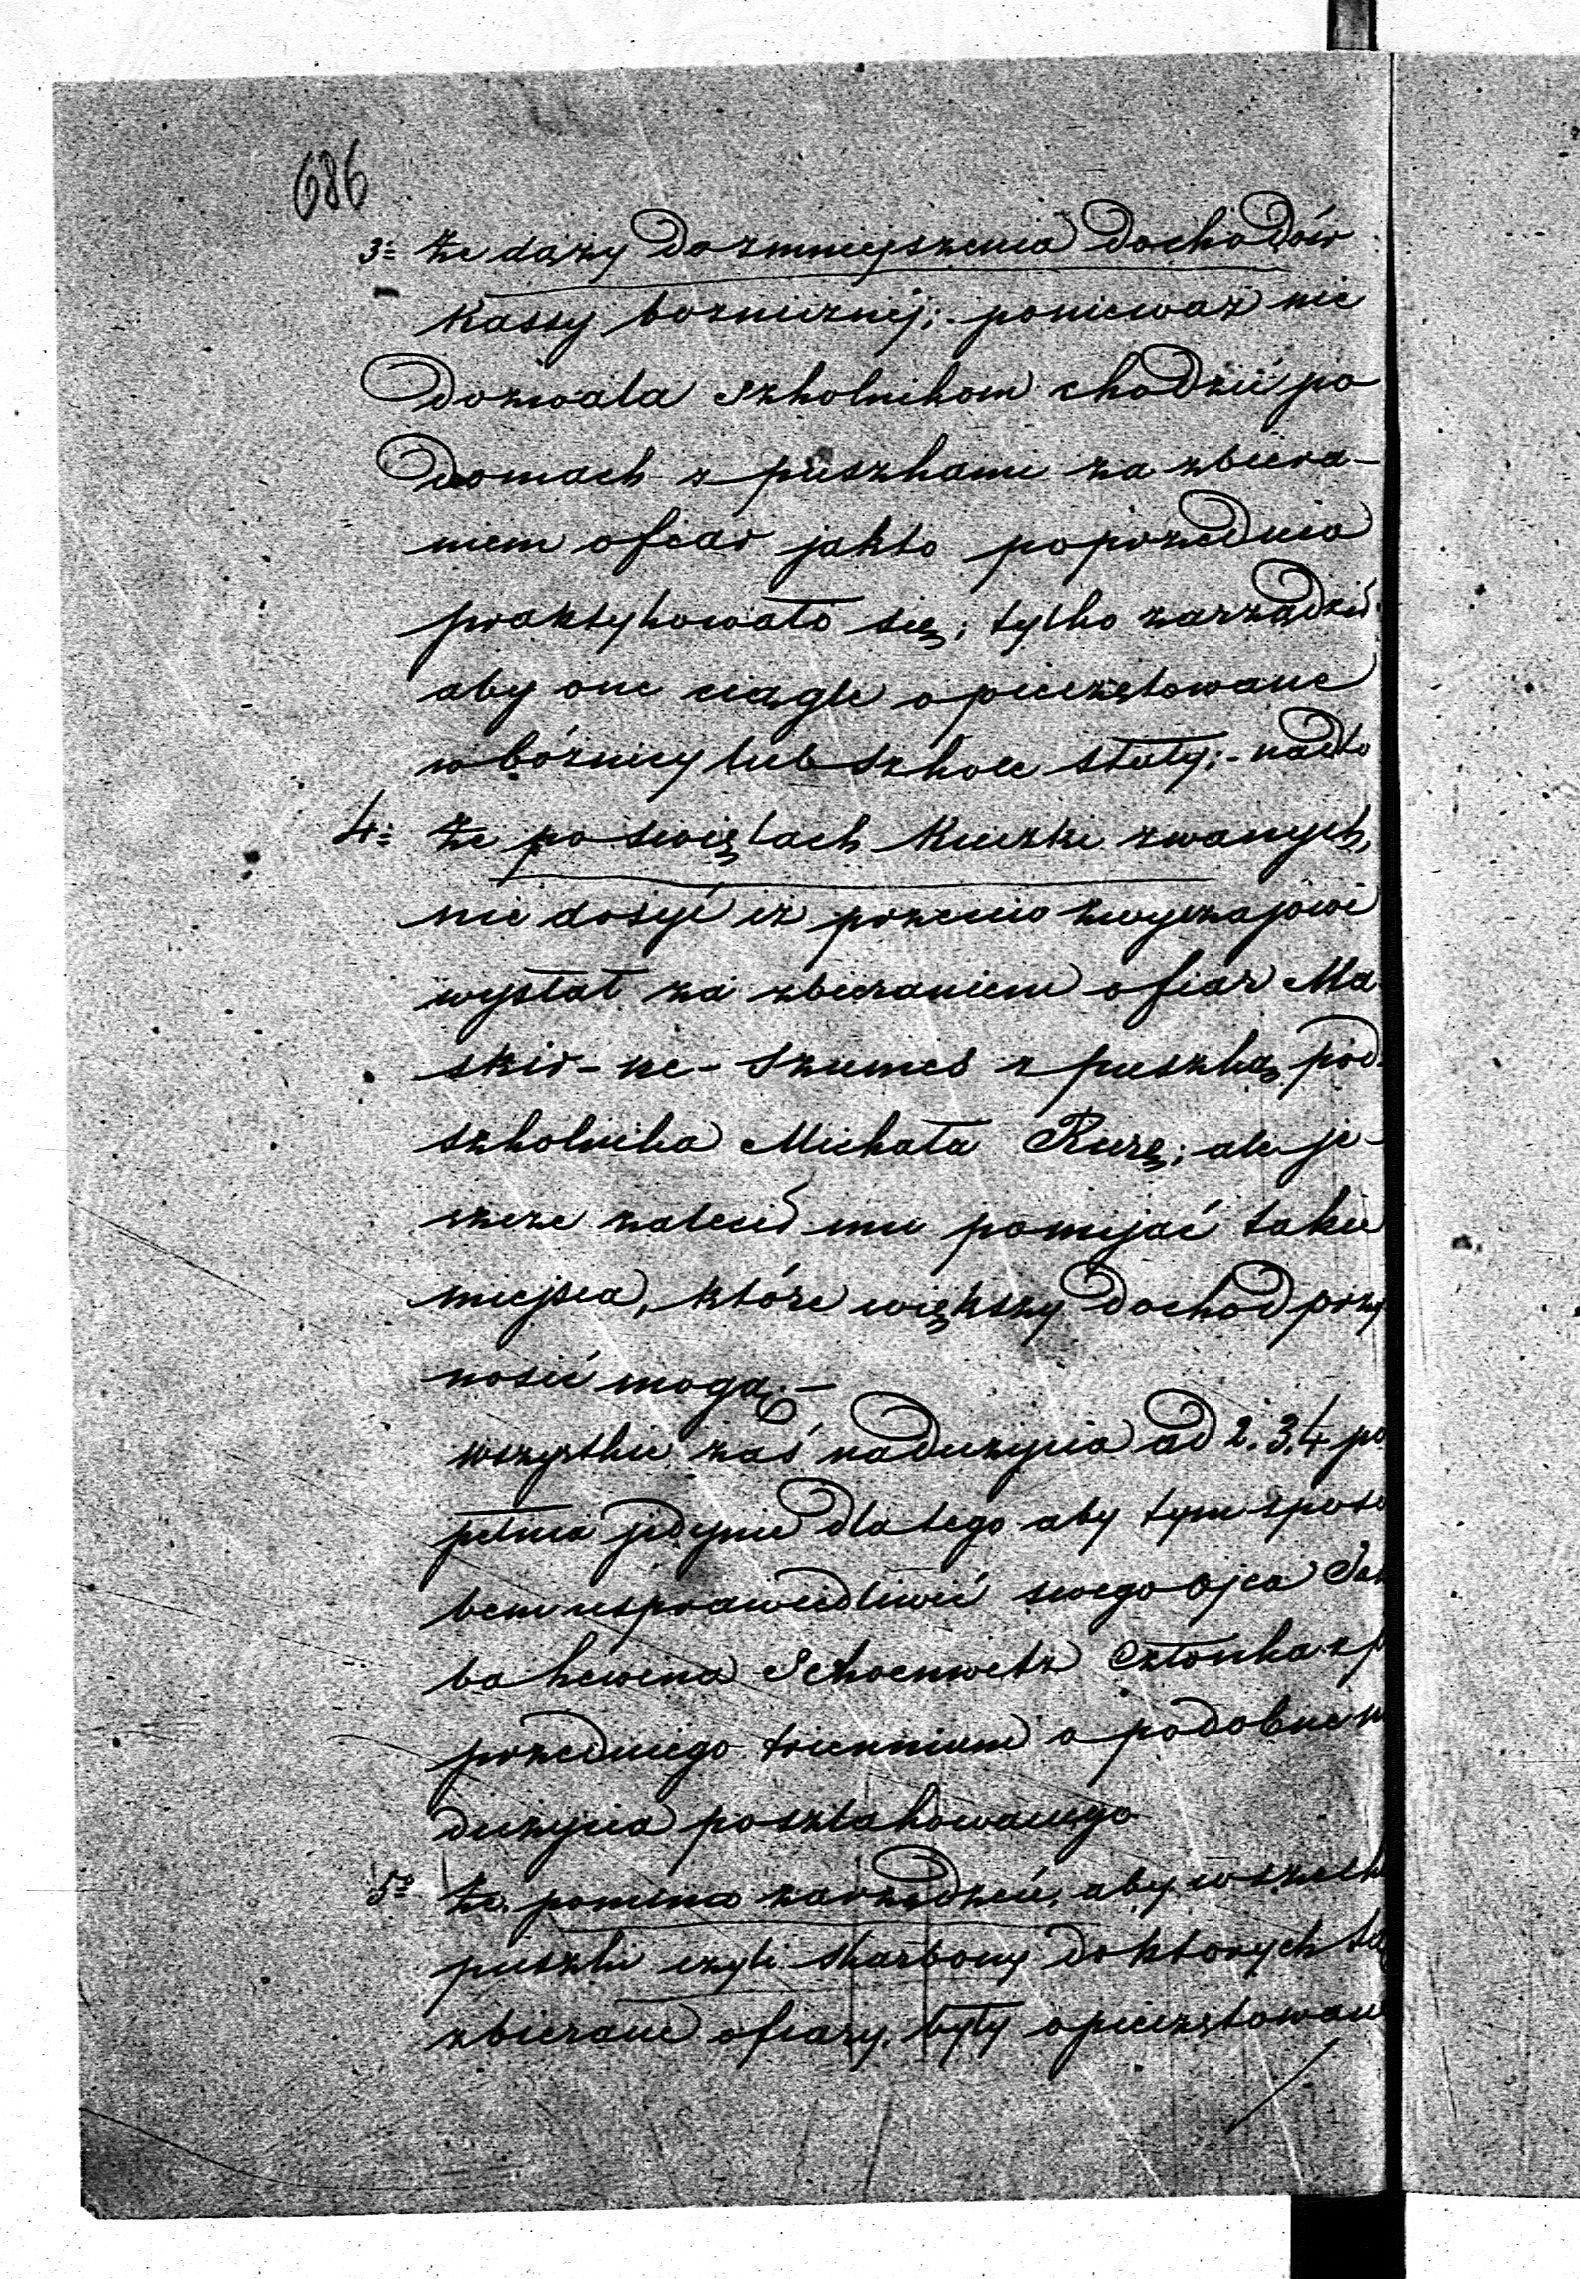 686
3= że dąży do zmniejszenia dochodów
Kassy boznicznéj; ponieważ nie
dozwala szkolnikom chodzić po
domach z puszkami za zbiera-
niem ofiar jakto poprzednio
praktykowało się; tylko zarządził
aby one ciągle opieczętowane
w bóżnicy lub szkole stały; - nadto
4= że po swiętach Kuczki zwanych,
nie dosyć iż przeciw zwyczajowi
wysłał za zbieraniem ofiar Ma
skir-ne-Szumes z puszką pod-
szkolnika Michała Rurę; ale je-
szcze zalecił mu pomijać takie
miejsca, które większy dochod przy
nosić mogą. -
wszystkie zaś nadużycia ad 2. 3. 4 po
pełnia jedynie dlatego aby tym sposo
bem usprawiedliwić swego ojca
Schoenwetz Członka z p
przedniego triennium o podobne n
dużycia poszlakowanego
5= że pomimo zarządzeń, aby wszelk
puszki czyli skarbony do których są
zbierane ofiary, były opieczętowane